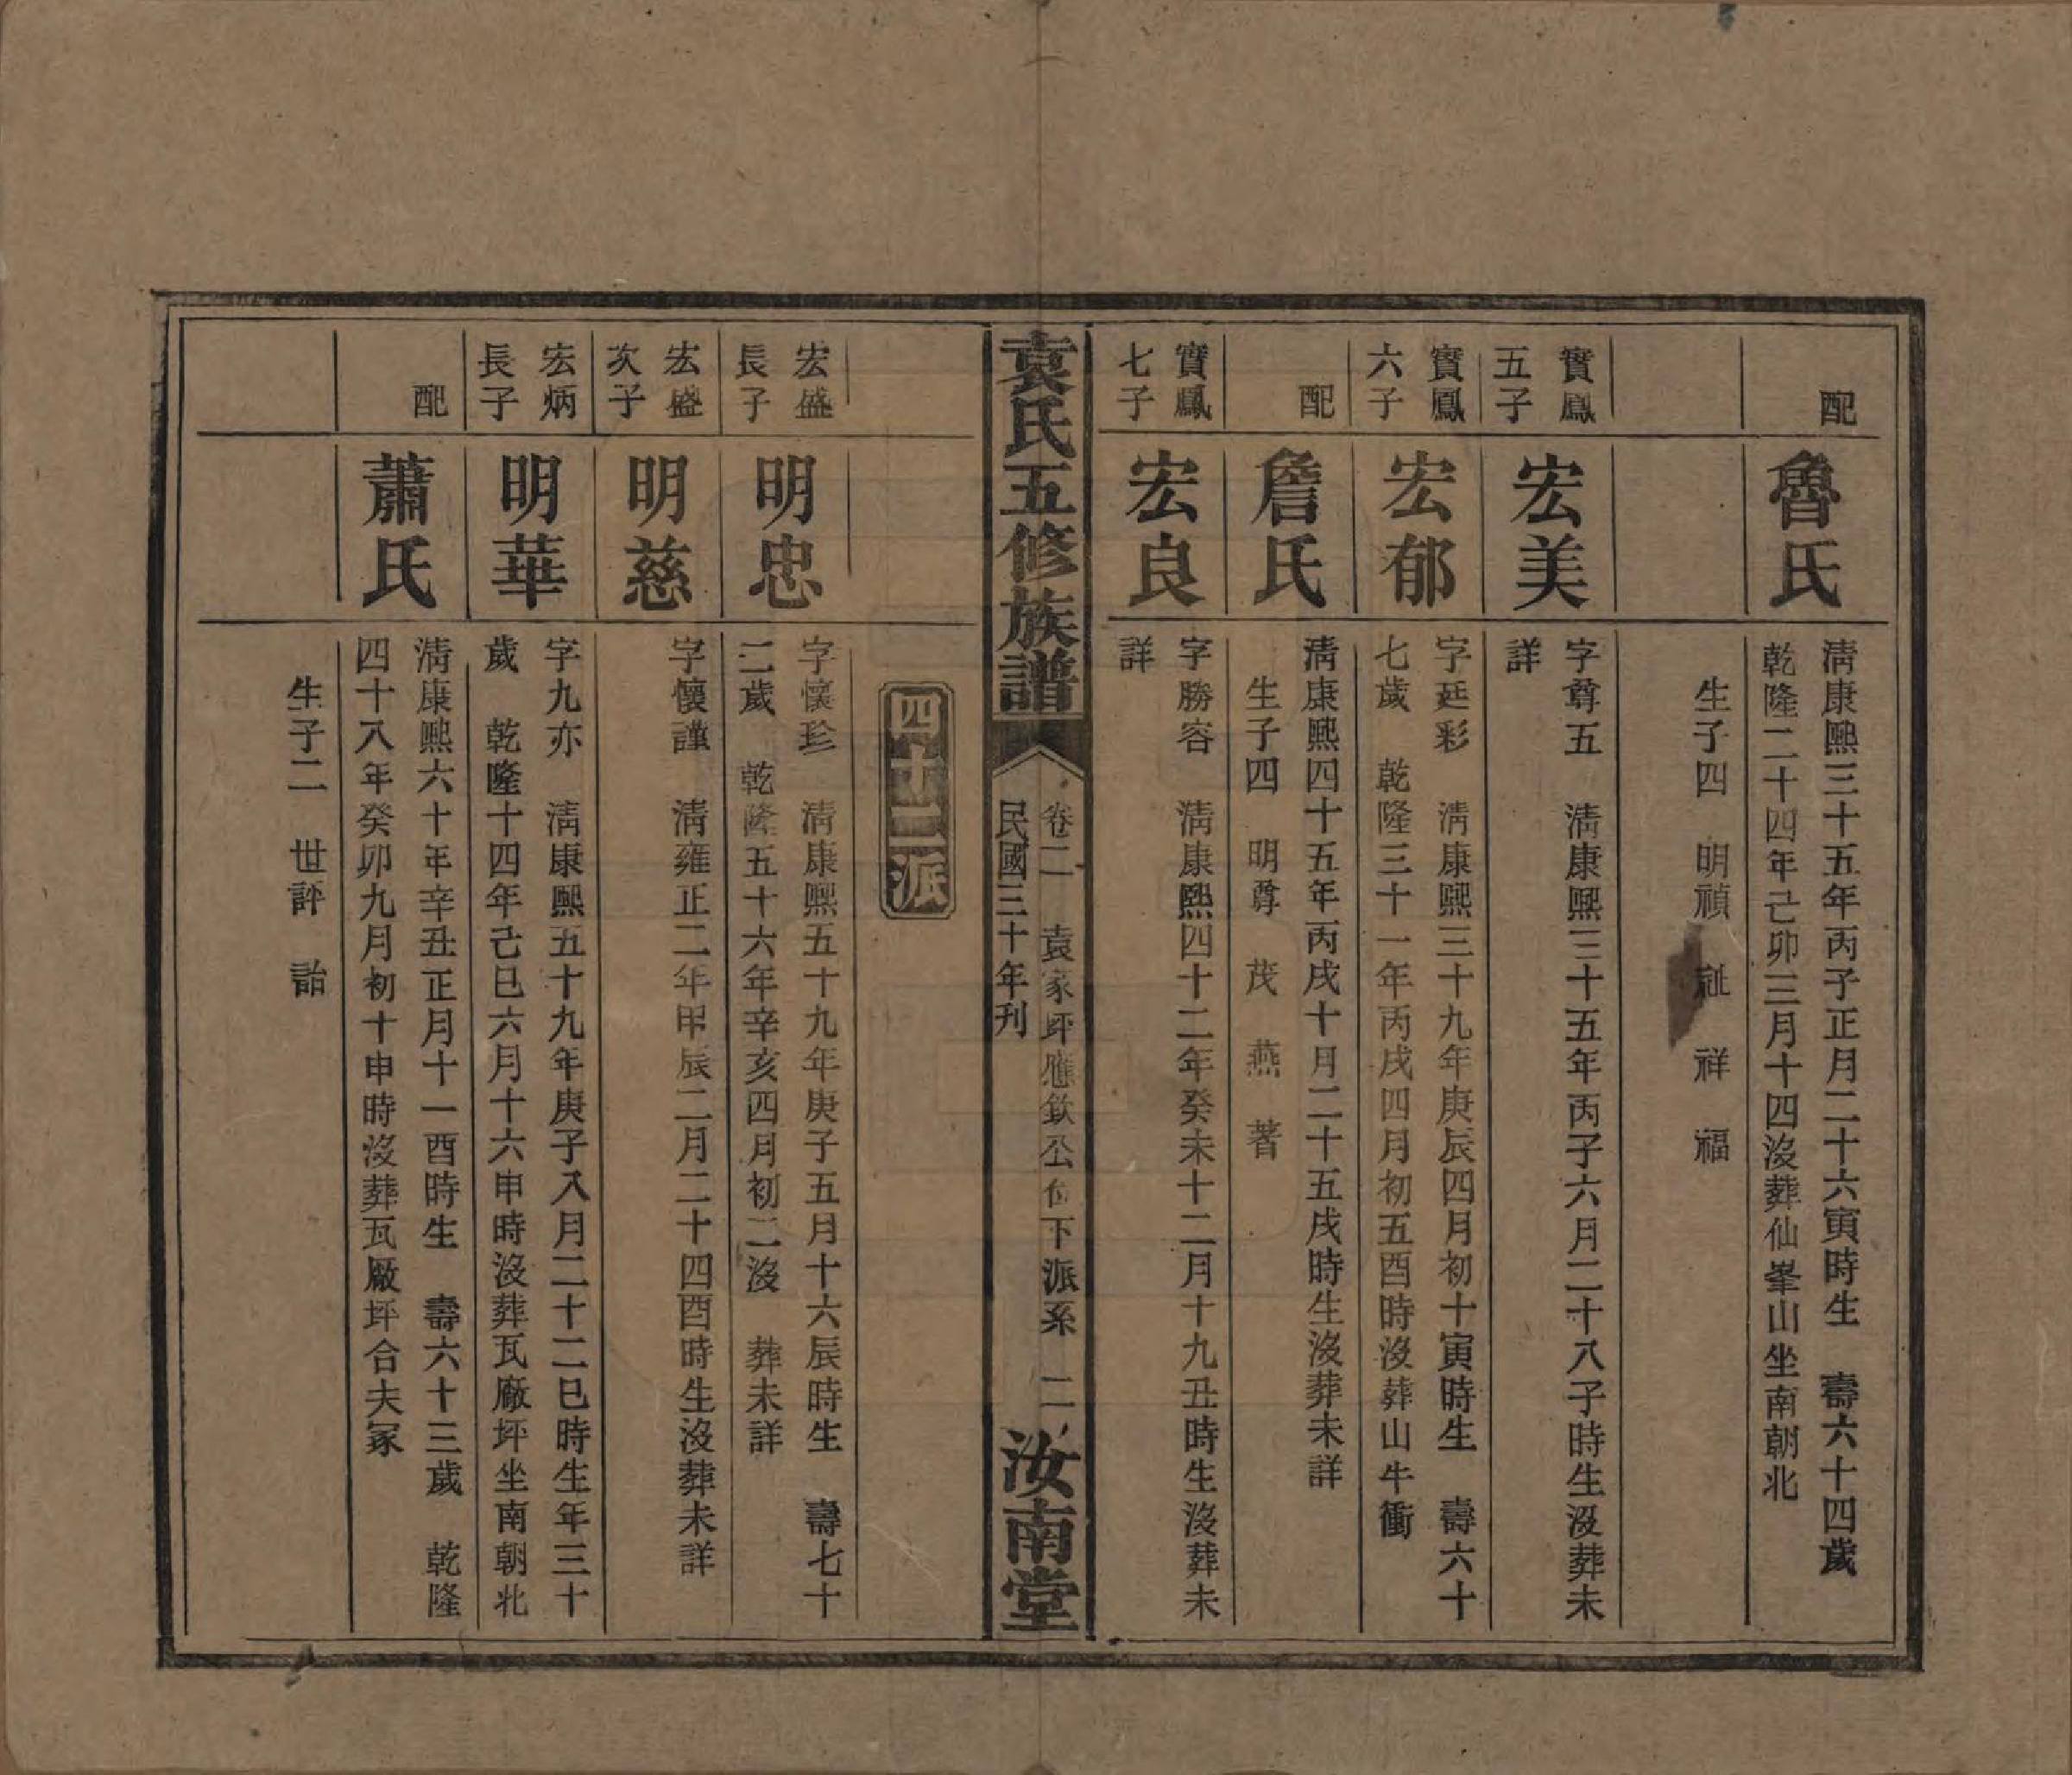 配
魯氏
清康熙三十五年丙子正月二十六寅時生　壽六十四歲
乾隆二十四年己卯三月十四沒葬仙峯山坐南朝北
生子四　明禎　祉　祥　福
寶鳳
五子
宏美
字尊五　清康熙三十五年丙子六月二十八子時生沒葬未
詳
寶鳳
六子
宏郁
字廷彩　清康熙三十九年庚辰四月初十寅時生　壽六十
七歲　乾隆三十一年丙戌四月初五酉時沒葬山牛衝
配
詹氏
清康熙四十五年丙戌十月二十五戌時生沒葬未詳
生子四　明尊　茂　燕　著
寶鳳
七子
宏良
字勝容　清康熙四十二年癸未十二月十九丑時生沒葬未
詳
袁氏五修族譜
卷二　袁家坪應欽公位下派系　二
民國三十年刊
汝南堂
四十二派
宏盛
長子
明忠
字懷珍　清康熙五十九年庚子五月十六辰時生　壽七十
二歲　乾隆五十六年辛亥四月初二沒　葬未詳
宏盛
次子
明慈
字懷謹　清雍正二年甲辰二月二十四酉時生沒葬未詳
宏炳
長子
明華
字九亦　清康熙五十九年庚子八月二十二巳時生年三十
歲　乾隆十四年己巳六月十六申時沒葬瓦廠坪坐南朝北
配
蕭氏
清康熙六十年辛丑正月十一酉時生　壽六十三歲　乾隆
四十八年癸卯九月初十申時沒葬瓦廠坪合夫冢
生子二　世評　詒